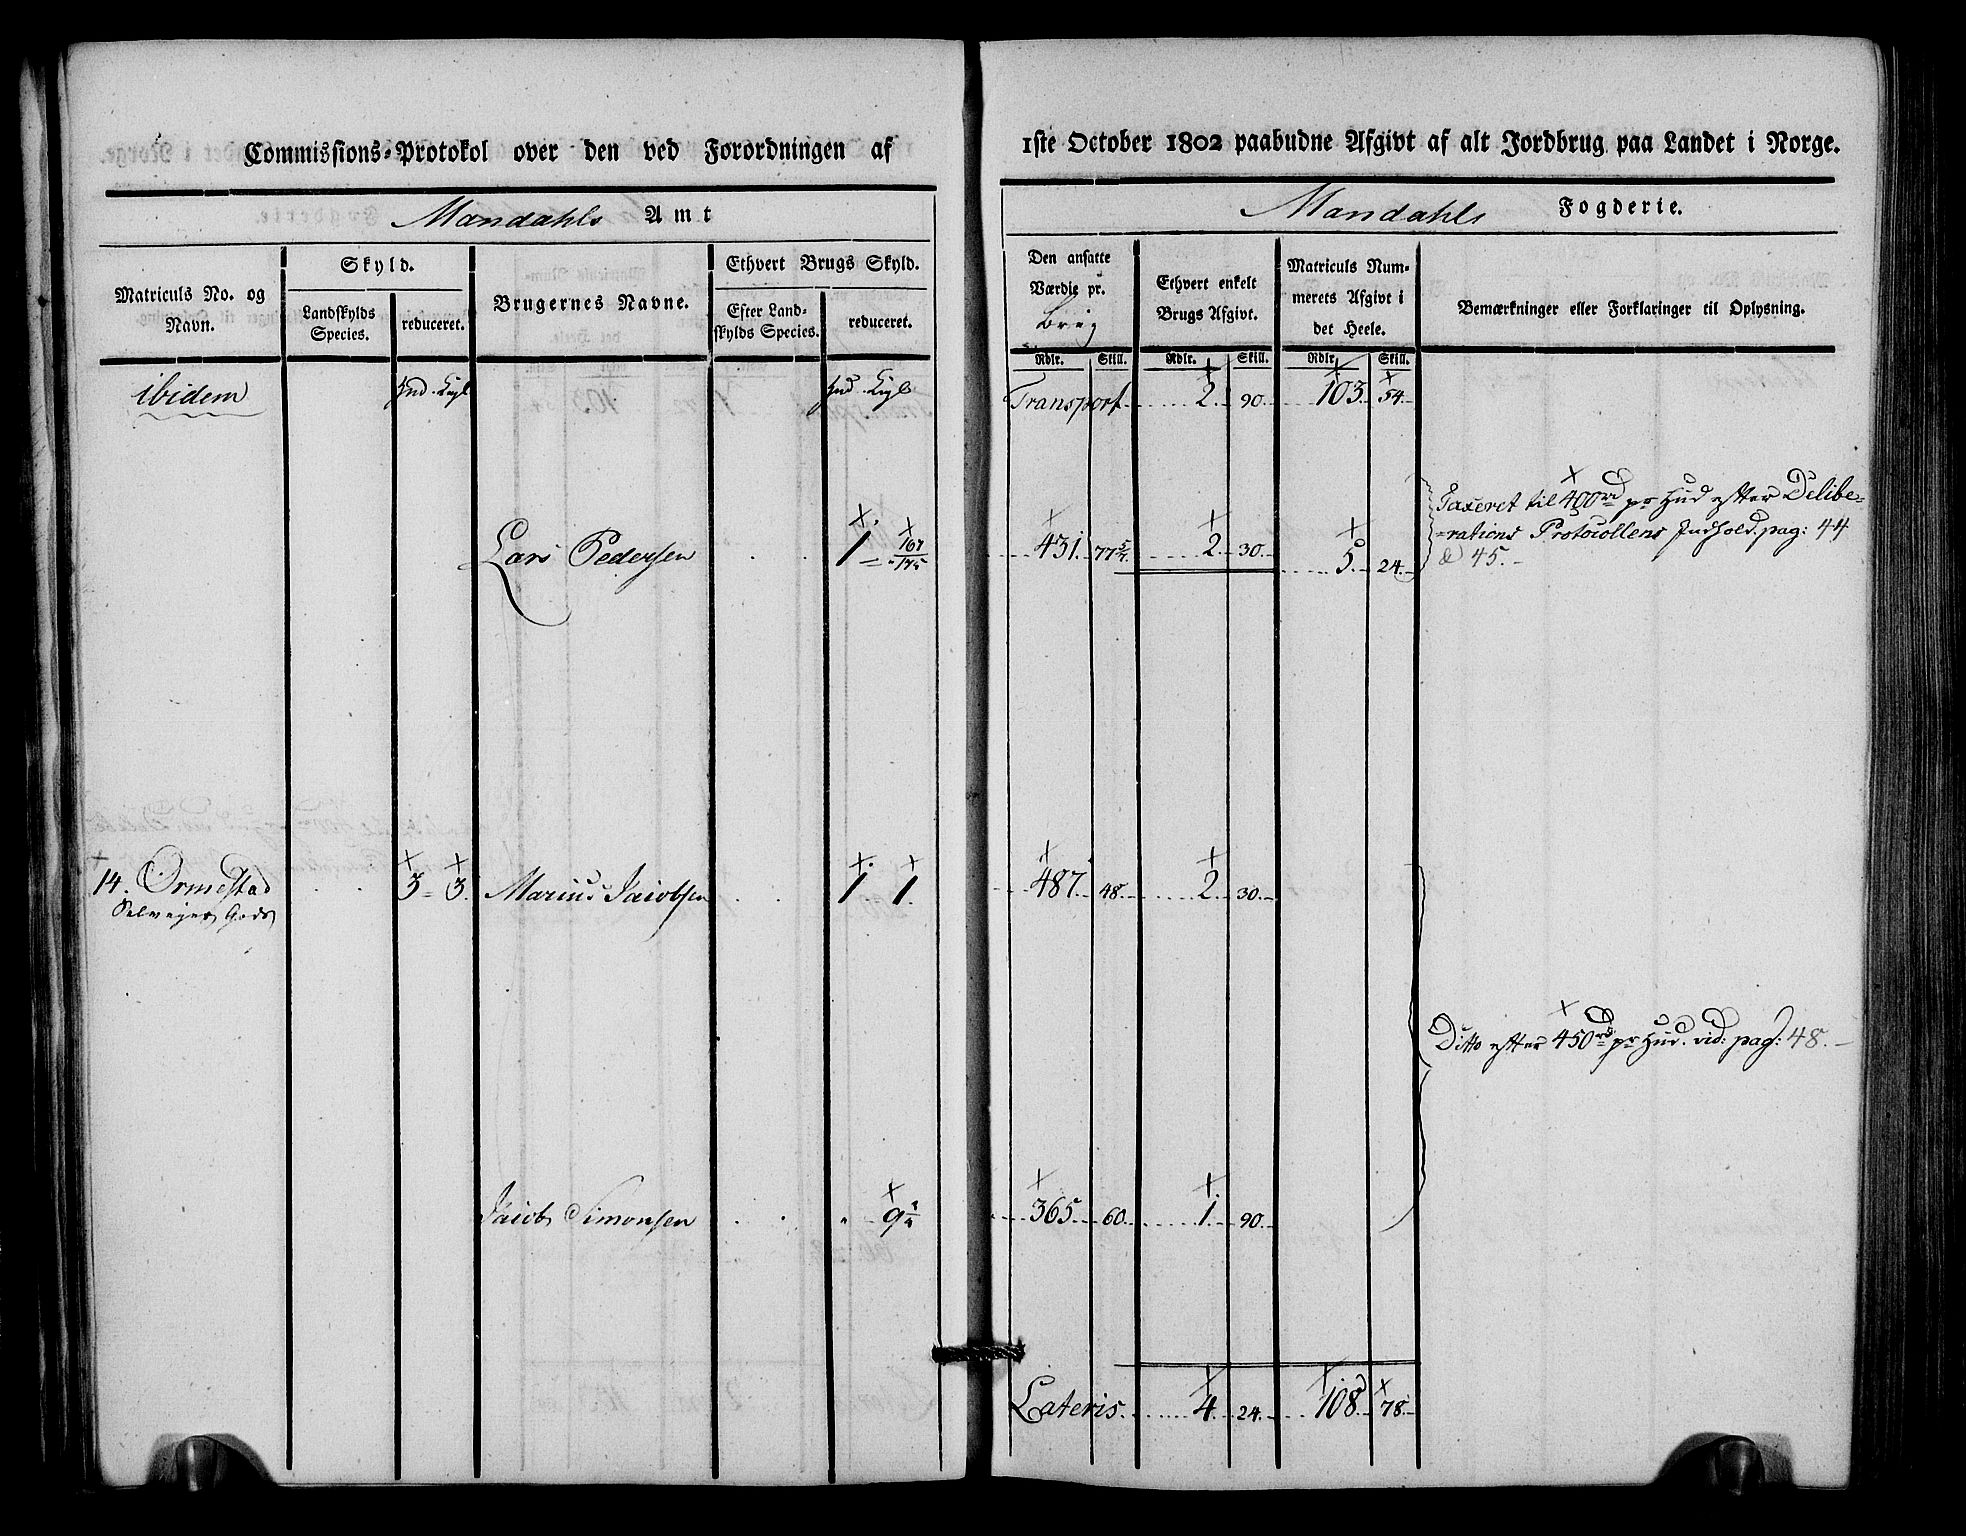 Commissions-Protokol over den ved Forordningen af
Mandahls Amt
Matriculs No. og Navn.
Skyld.
Landskylds Species.
reduceret.
Brugernes Navne.
Ethvert Brugs Skyld.
Efter Landskylds Species.
reduceret.
ibidem
Lars Pedersen 1
14. Ormestad 3 - 3. Marius Jacobsen 1 1.
Selveier Gods
Jacob Simonsen
1ste October 1802 paabudne Afgivt af alt Jordbrug paa Landet i Norge.
Mandahls Fogderie.
Den ansatte Værdie pr. Brug
Ethvert enkelt Brugs Afgivt.
Matriculs Nummerets Afgivt i det Heele.
Bemærkninger eller Forklaringer til Oplysning.
Rdlr. Skill. Rdlr. Skill. Rdlr. Skill.
Transport 2. 90. 103. 54.
Taxeret til 400rd pr Hud efter Delibe=
=rations Protocollens Indhold pag: 44
& 45.
431. 77 5/7. 2. 30. 5. 24.
487. 48. 2. 30.
Ditto efter 450rd pr Hud. vid: pag: 48.
365. 60. 1. 90.
Lateris. 4. 24. 108. 78.